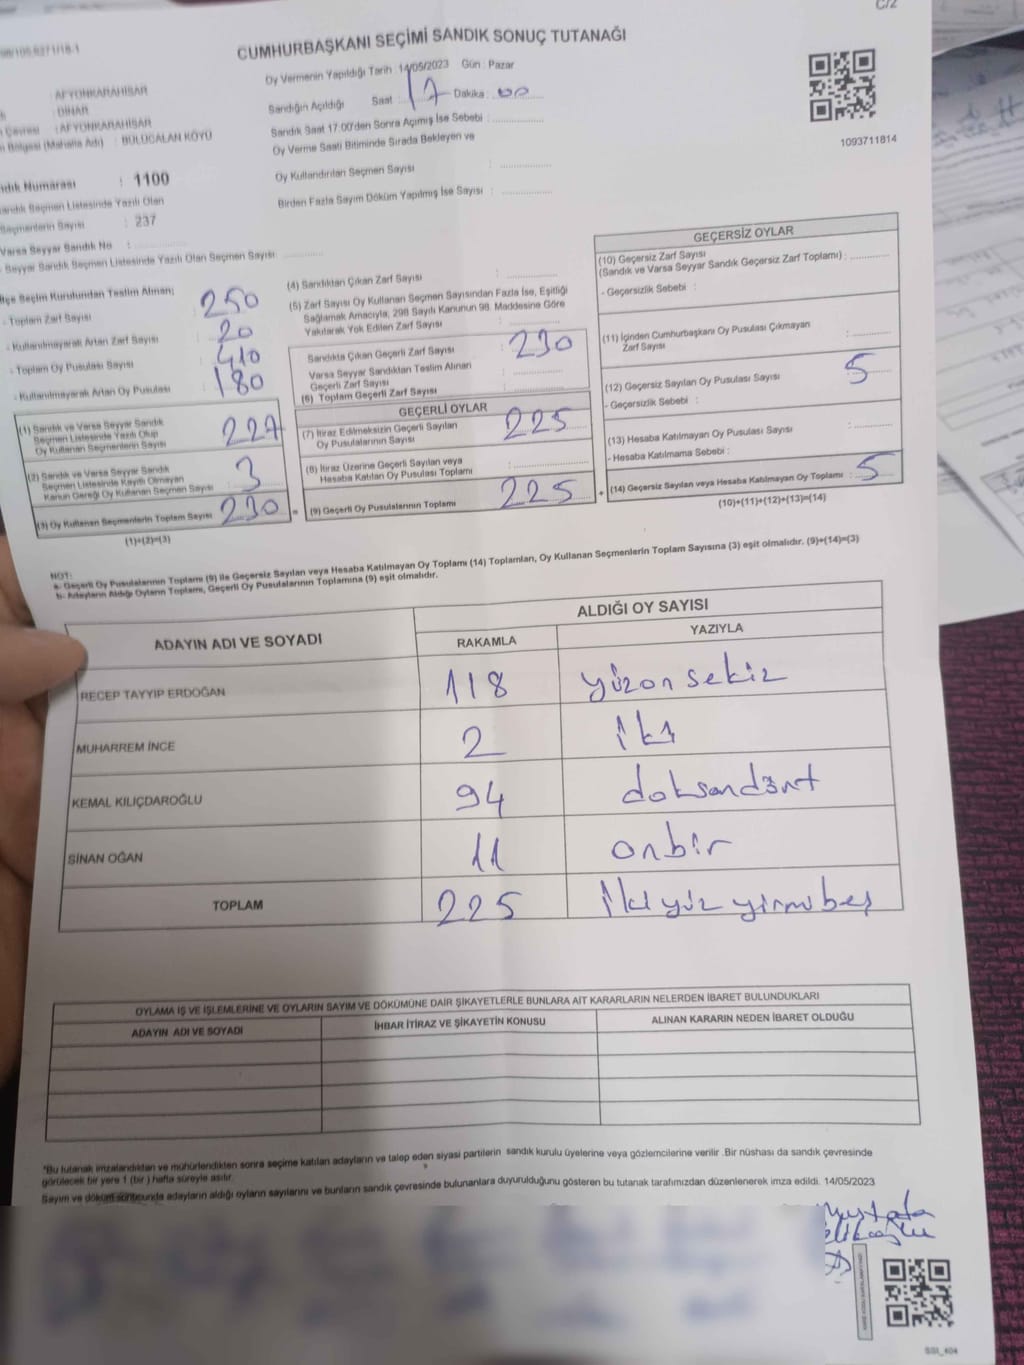 C/2
CUMHURBAŞKANI SEÇİMİ SANDIK SONUÇ TUTANAĞI
Oy Vermenin Yapıldığı Tarih : 14/05/2023 Gün : Pazar
Sandığın Açıldığı Saat : 17 Dakika : 00
Sandık Saat 17:00'den Sonra Açılmış İse Sebebi :
Oy Verme Saati Bitiminde Sırada Bekleyen ve
Oy Kullandırılan Seçmen Sayısı :
Birden Fazla Sayım Döküm Yapılmış İse Sayısı :
1093711814
: AFYONKARAHİSAR
: DİNAR
Çevresi : AFYONKARAHİSAR
Bölgesi (Mahalle Adı) : BÜLÜÇALAN KÖYÜ
Numarası : 1100
Seçmen Listesinde Yazılı Olan
Seçmenlerin Sayısı : 237
Varsa Seyyar Sandık No :
- Seyyar Sandık Seçmen Listesinde Yazılı Olan Seçmen Sayısı:
İlçe Seçim Kurulundan Teslim Alınan;
- Toplam Zarf Sayısı : 250
- Kullanılmayarak Artan Zarf Sayısı : 20
- Toplam Oy Pusulası Sayısı : 410
- Kullanılmayarak Artan Oy Pusulası : 180
(1) Sandık ve Varsa Seyyar Sandık
Seçmen Listesinde Yazılı Olup
Oy Kullanan Seçmenlerin Sayısı 227
(2) Sandık ve Varsa Seyyar Sandık
Seçmen Listesinde Kayıtlı Olmayan
Kanun Gereği Oy Kullanan Seçmen Sayısı : 3
(3) Oy Kullanan Seçmenlerin Toplam Sayısı : 230 =
(1)+(2)=(3)
(4) Sandıktan Çıkan Zarf Sayısı :
(5) Zarf Sayısı Oy Kullanan Seçmen Sayısından Fazla İse, Eşitliği
Sağlamak Amacıyla, 298 Sayılı Kanunun 98. Maddesine Göre
Yakılarak Yok Edilen Zarf Sayısı :
Sandıkta Çıkan Geçerli Zarf Sayısı : 230
Varsa Seyyar Sandıktan Teslim Alınan
Geçerli Zarf Sayısı :
(6) Toplam Geçerli Zarf Sayısı :
GEÇERLİ OYLAR
(7) İtiraz Edilmeksizin Geçerli Sayılan
Oy Pusulalarının Sayısı : 225
(8) İtiraz Üzerine Geçerli Sayılan veya
Hesaba Katılan Oy Pusulası Toplamı :
(9) Geçerli Oy Pusulalarının Toplamı : 225 +
GEÇERSİZ OYLAR
(10) Geçersiz Zarf Sayısı
(Sandık ve Varsa Seyyar Sandık Geçersiz Zarf Toplamı) :
- Geçersizlik Sebebi :
(11) İçinden Cumhurbaşkanı Oy Pusulası Çıkmayan
Zarf Sayısı :
(12) Geçersiz Sayılan Oy Pusulası Sayısı : 5
- Geçersizlik Sebebi :
(13) Hesaba Katılmayan Oy Pusulası Sayısı :
- Hesaba Katılmama Sebebi :
(14) Geçersiz Sayılan veya Hesaba Katılmayan Oy Toplamı : 5
(10)+(11)+(12)+(13)=(14)
NOT:
a- Geçerli Oy Pusulalarının Toplamı (9) ile Geçersiz Sayılan veya Hesaba Katılmayan Oy Toplamı (14) Toplamları, Oy Kullanan Seçmenlerin Toplam Sayısına (3) eşit olmalıdır. (9)+(14)=(3)
b- Adayların Aldığı Oyların Toplamı, Geçerli Oy Pusulalarının Toplamına (9) eşit olmalıdır.
ADAYIN ADI VE SOYADI
ALDIĞI OY SAYISI
RAKAMLA YAZIYLA
RECEP TAYYİP ERDOĞAN 118 yüzonsekiz
MUHARREM İNCE 2 iki
KEMAL KILIÇDAROĞLU 94 doksandört
SİNAN OĞAN 11 onbir
TOPLAM 225 ikiyüz yirmibeş
OYLAMA İŞ VE İŞLEMLERİNE VE OYLARIN SAYIM VE DÖKÜMÜNE DAİR ŞİKAYETLERLE BUNLARA AİT KARARLARIN NELERDEN İBARET BULUNDUKLARI
ADAYIN ADI VE SOYADI İHBAR İTİRAZ VE ŞİKAYETİN KONUSU ALINAN KARARIN NEDEN İBARET OLDUĞU
*Bu tutanak imzalandıktan ve mühürlendikten sonra seçime katılan adayların ve talep eden siyasi partilerin sandık kurulu üyelerine veya gözlemcilerine verilir .Bir nüshası da sandık çevresinde
görülecek bir yere 1 (bir ) hafta süreyle asılır.
Sayım ve döküm sonucunda adayların aldığı oyların sayılarını ve bunların sandık çevresinde bulunanlara duyurulduğunu gösteren bu tutanak tarafımızdan düzenlenerek imza edildi. 14/05/2023
Mustafa